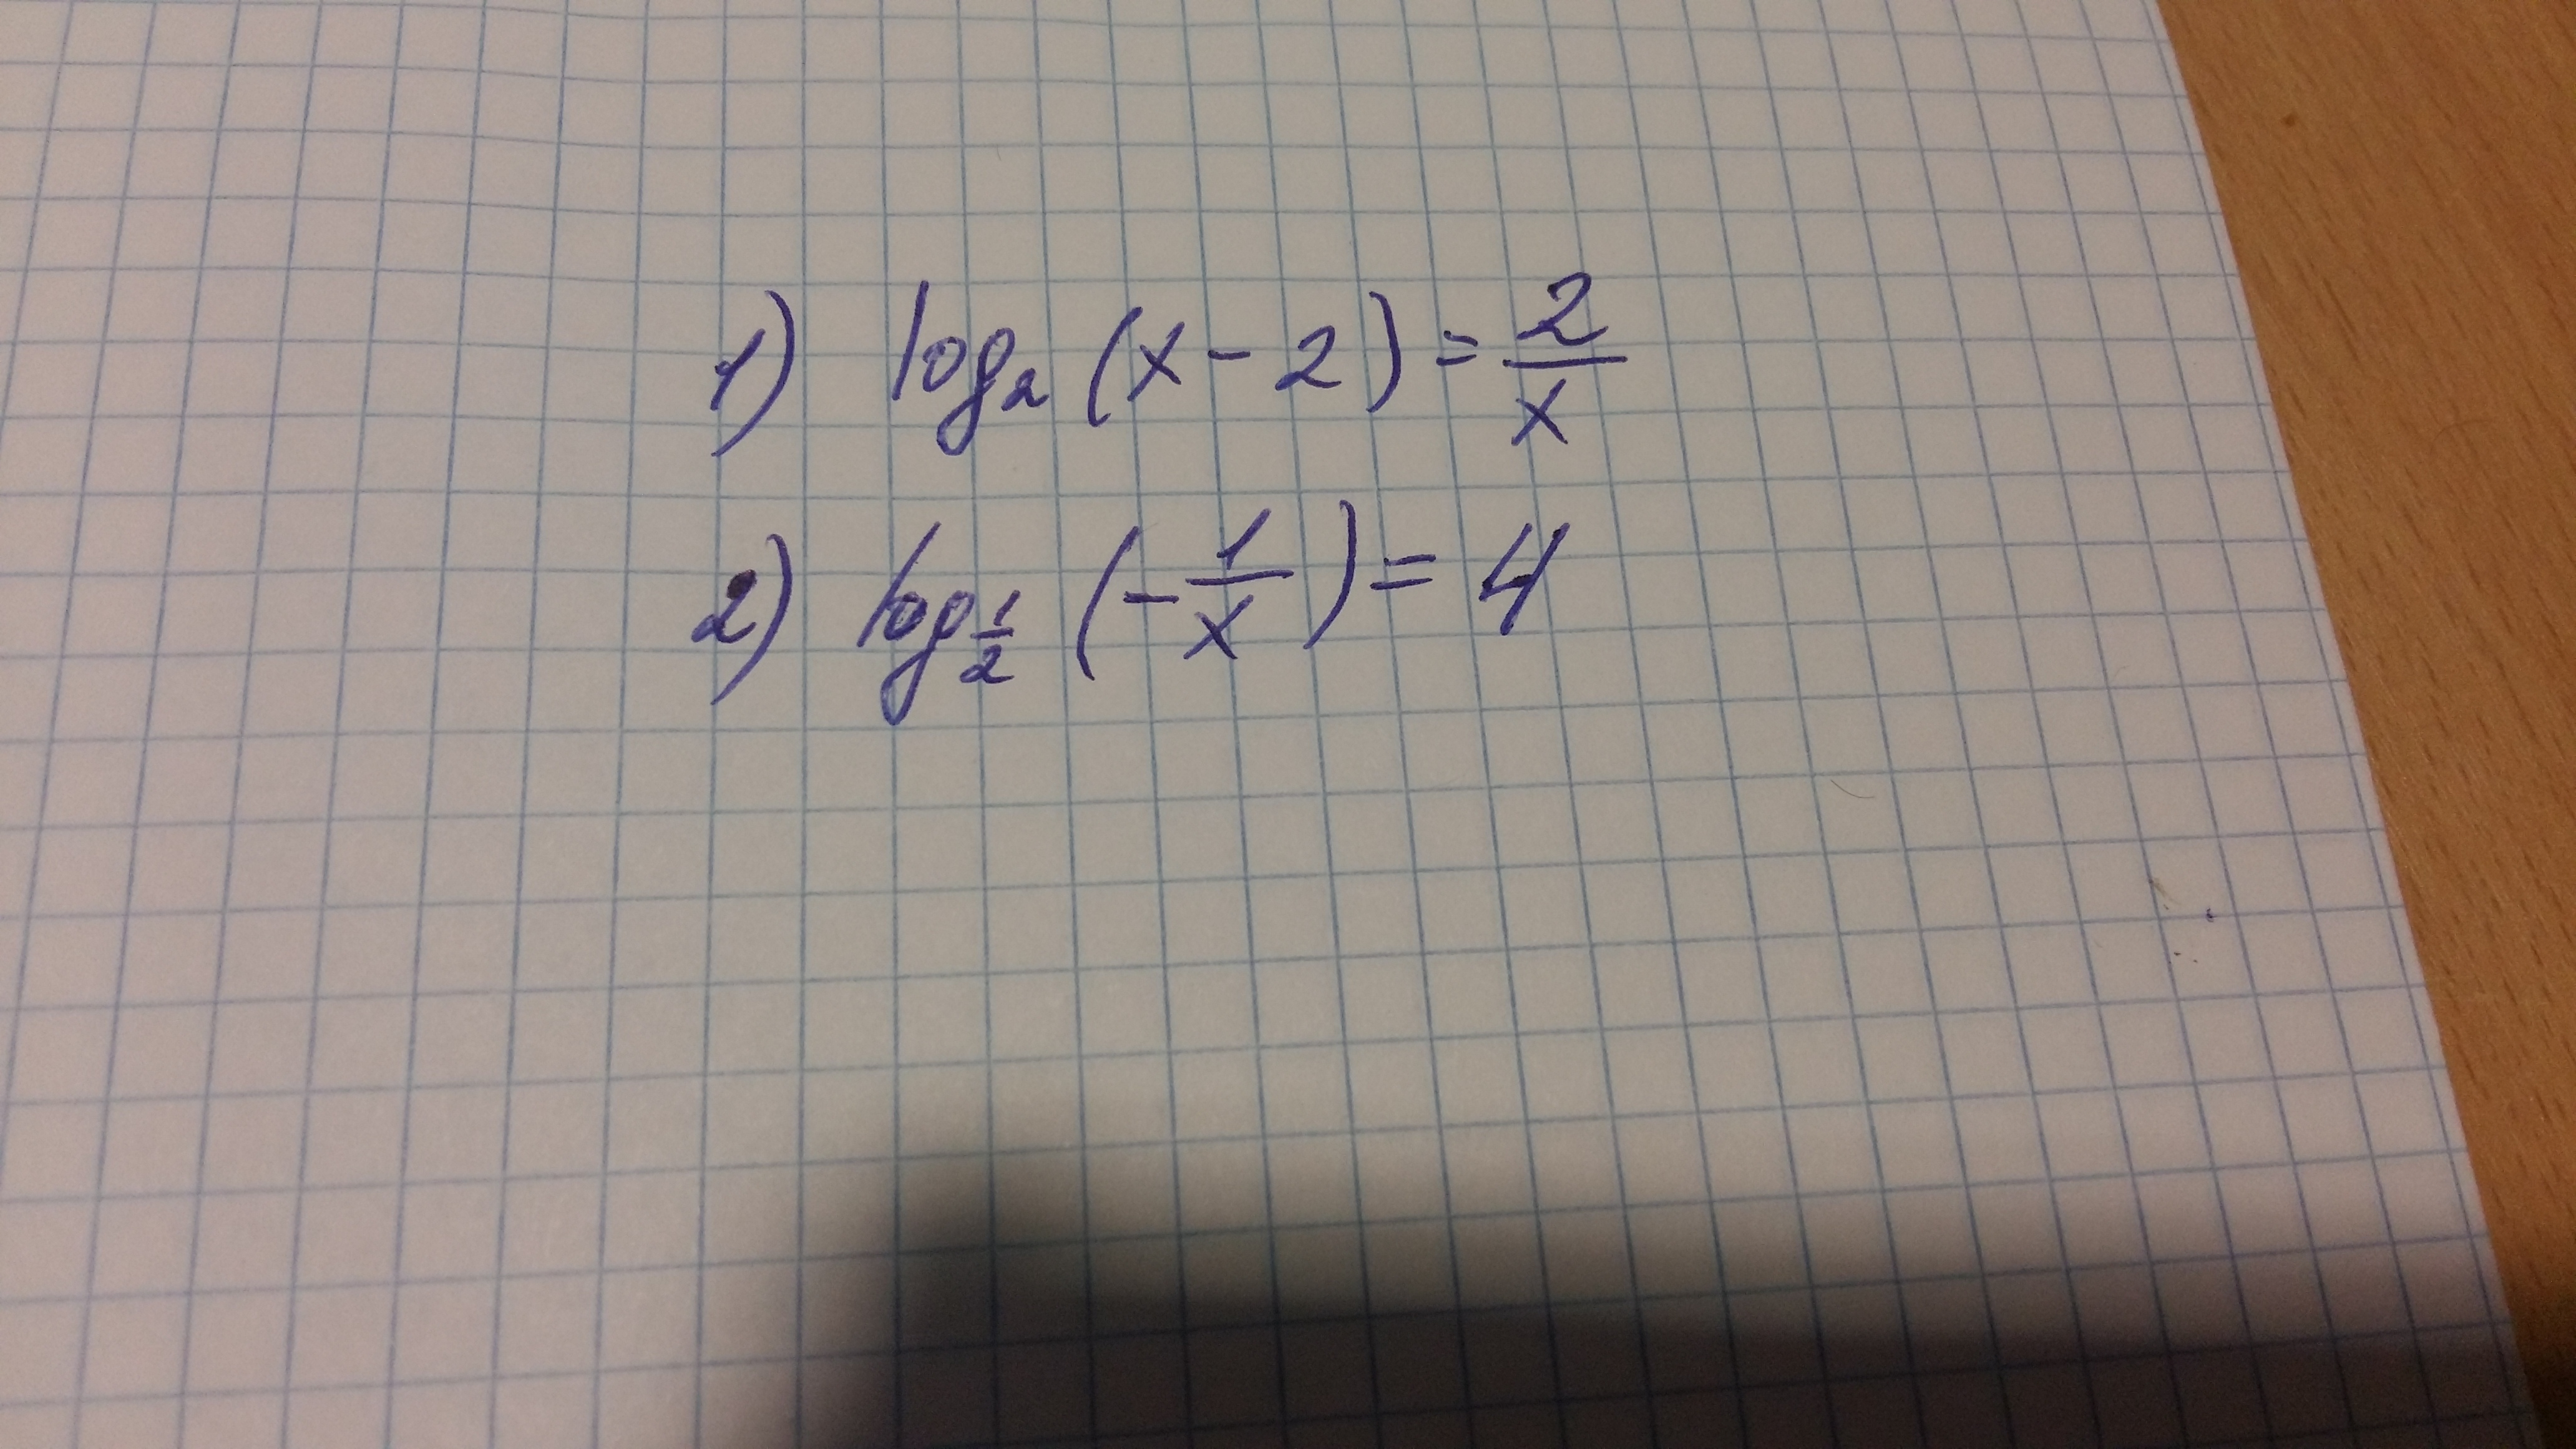 1) log₂ (x - 2) = 2/x
2) log_{1/2} (-1/x) = 4